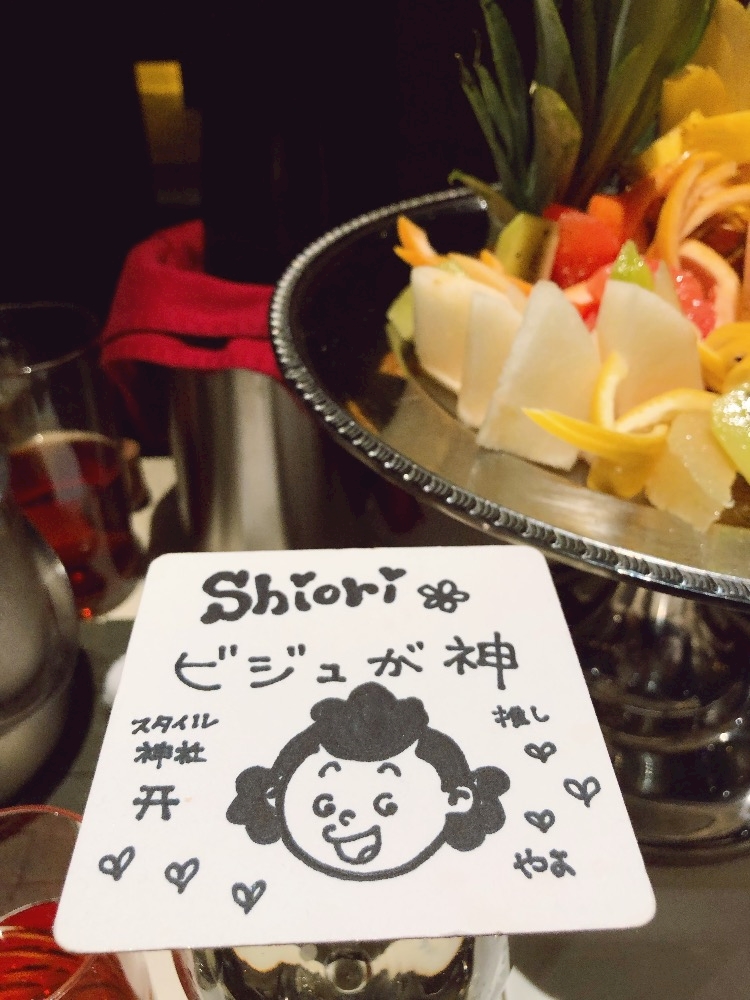 Shiori
ビジュが神
スタイル
神社
开
推し
やよ